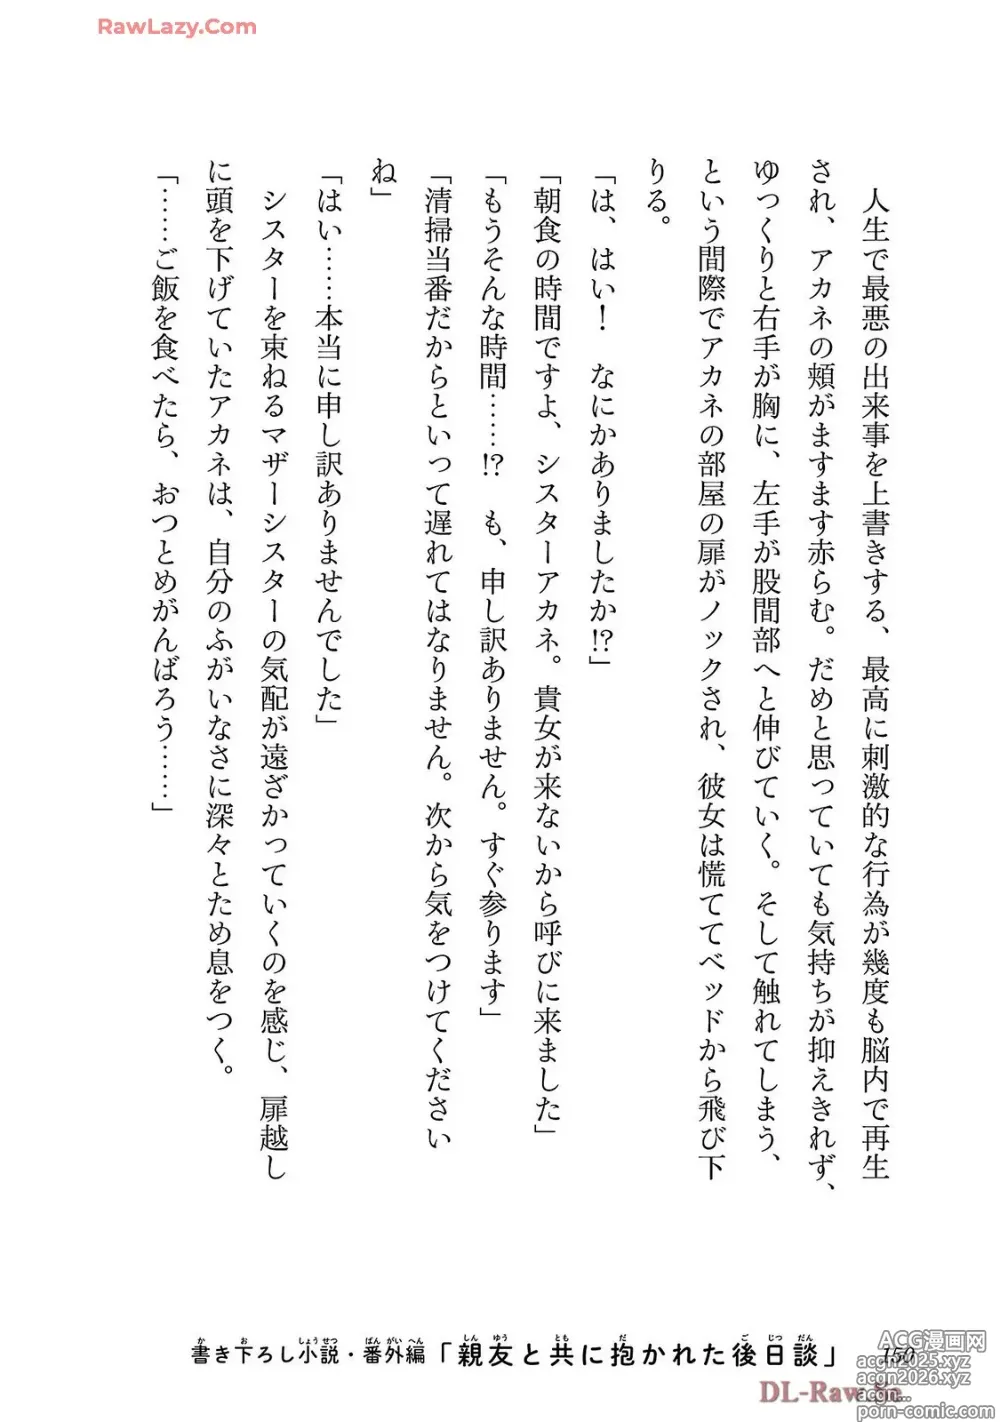 RawLazy.Com
人生で最悪の出来事を上書きする、最高に刺激的な行為が幾度も脳内で再生
され、アカネの頬がますます赤らむ。だめと思っていても気持ちが抑えきれず、
ゆっくりと右手が胸に、左手が股間部へと伸びていく。そして触れてしまう、
という間際でアカネの部屋の扉がノックされ、彼女は慌ててベッドから飛び下
りる。
「は、はい！　なにかありましたか!?」
「朝食の時間ですよ、シスターアカネ。貴女が来ないから呼びに来ました」
「もうそんな時間……!?　も、申し訳ありません。すぐ参ります」
「清掃当番だからといって遅れてはなりません。次から気をつけてください
ね」
「はい……本当に申し訳ありませんでした」
シスターを束ねるマザーシスターの気配が遠ざかっていくのを感じ、扉越し
に頭を下げていたアカネは、自分のふがいなさに深々とため息をつく。
「……ご飯を食べたら、おつとめがんばろう……」
書き下ろし小説・番外編「親友と共に抱かれた後日談」
150
ACG漫画网
acgn2025.xyz
acgn2026.xyz
porn-comic.com